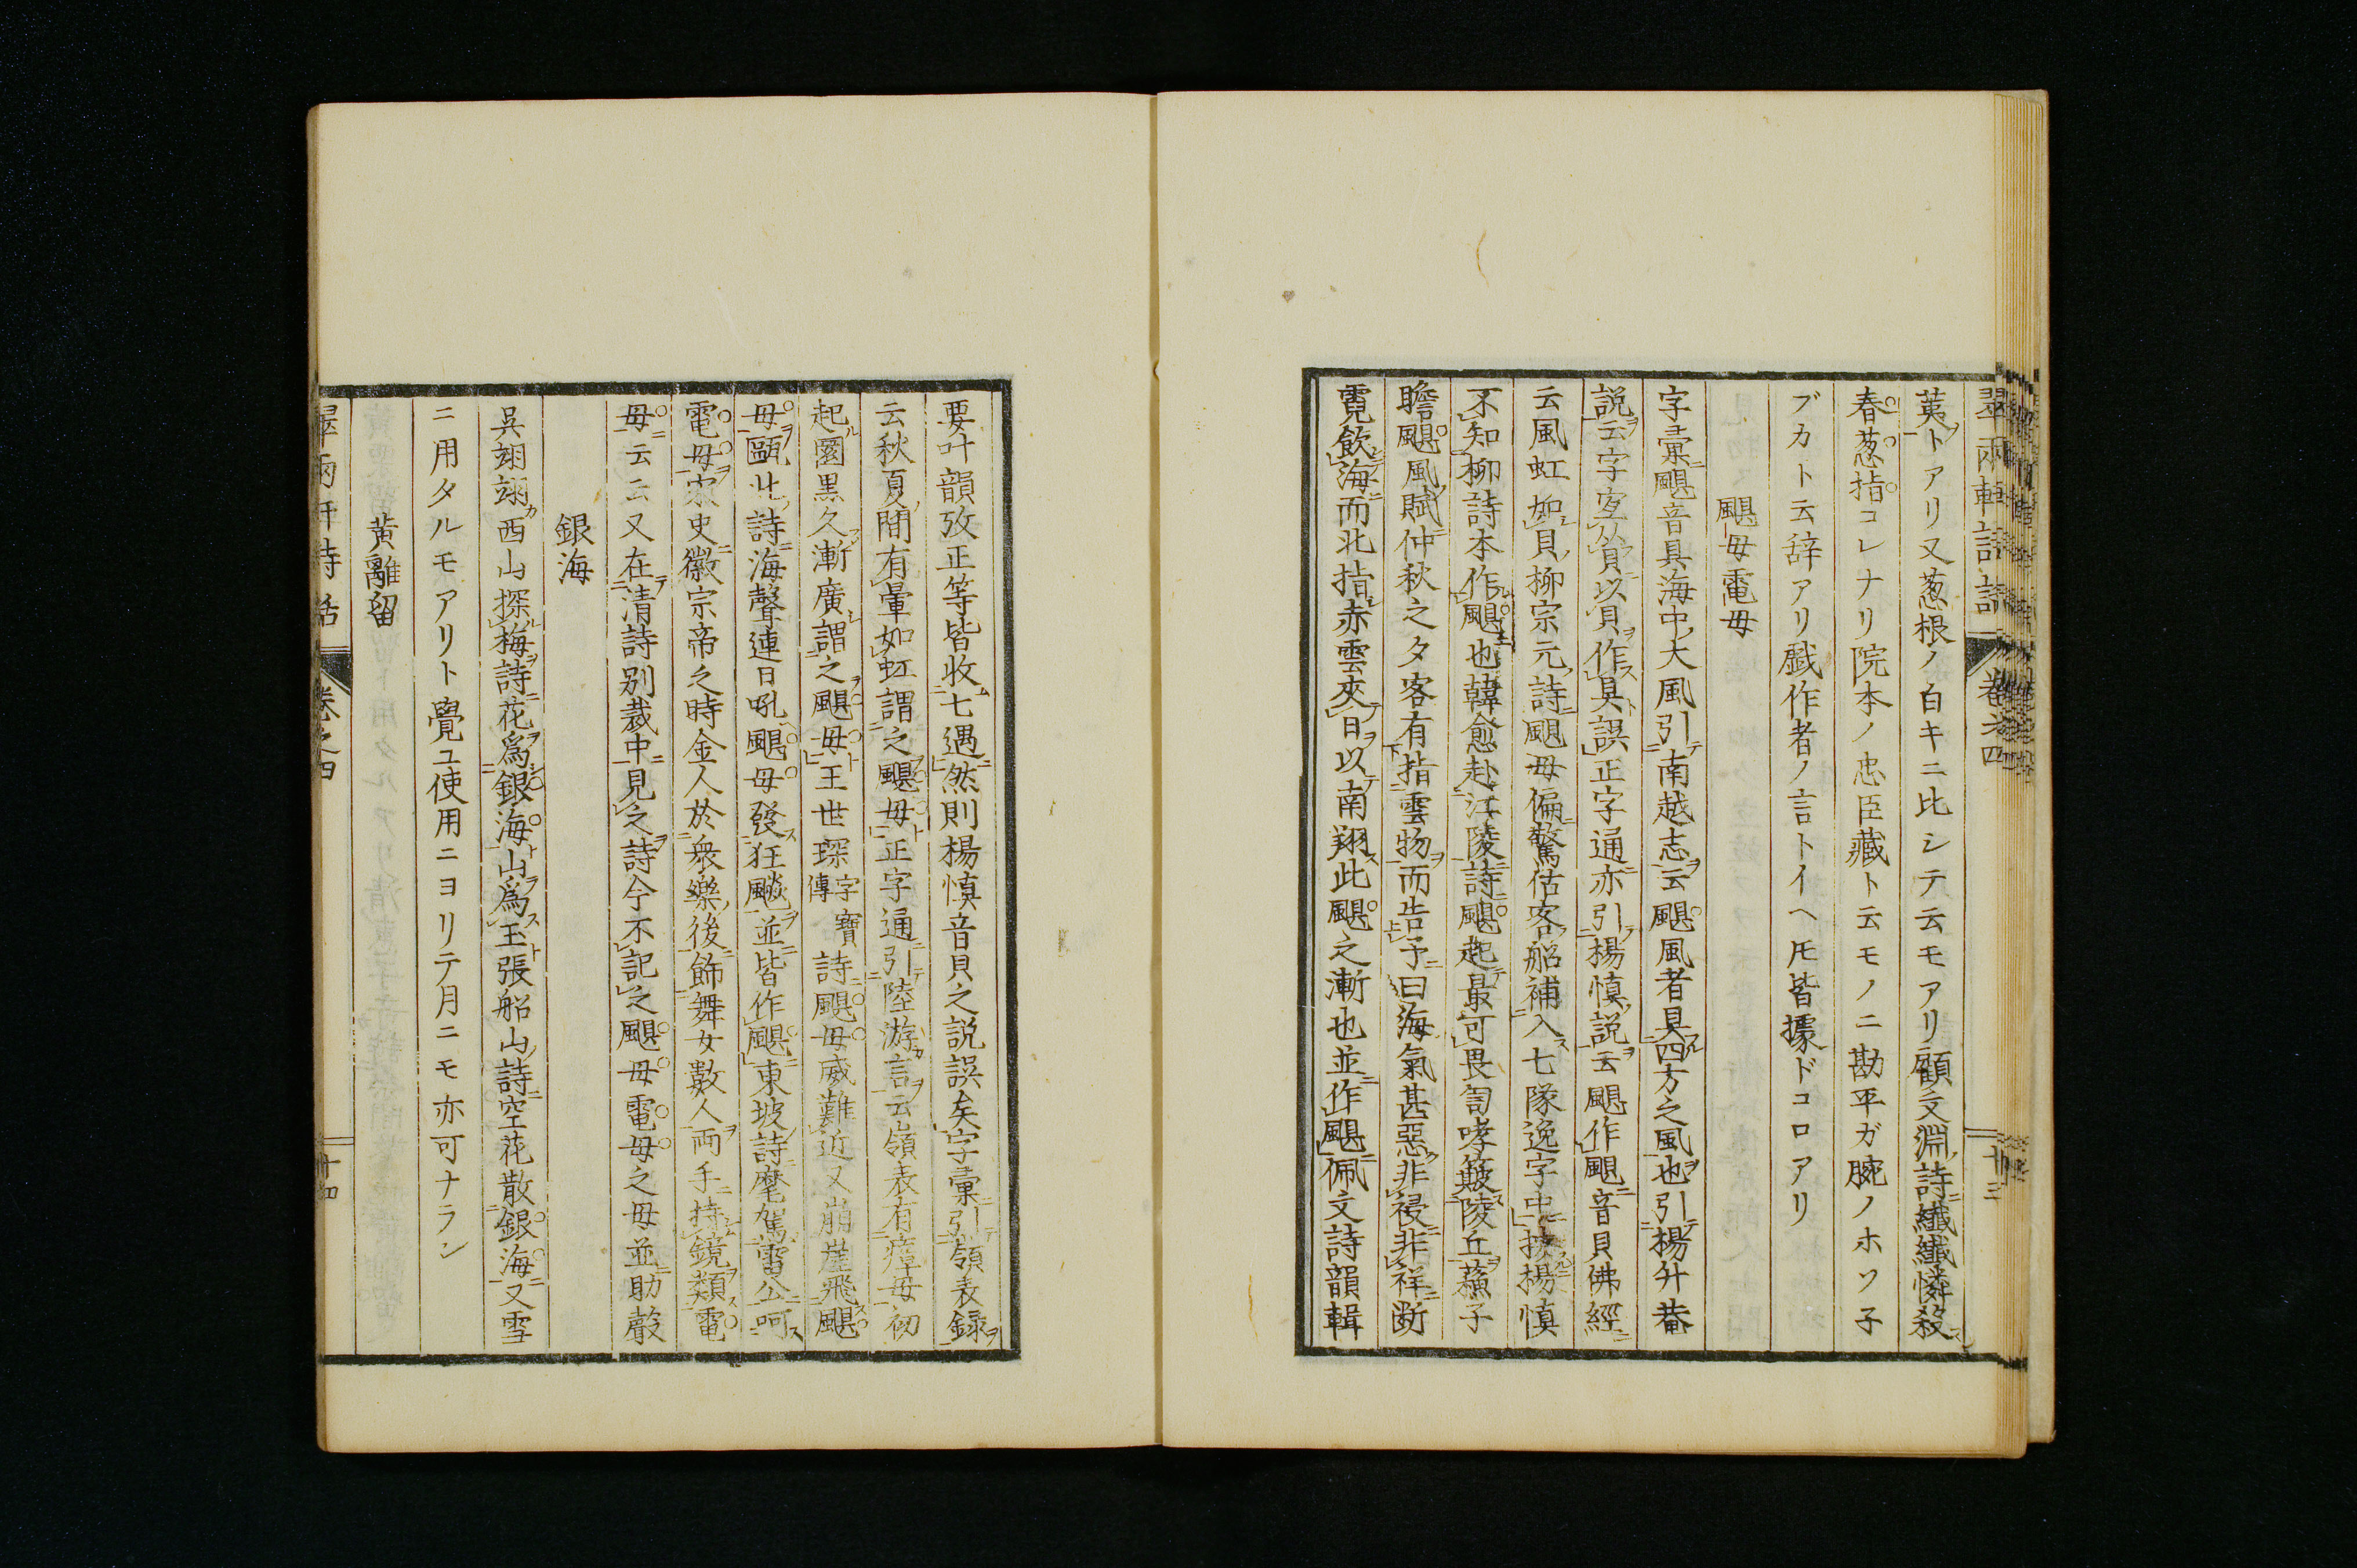 翠雨軒詩話 卷之四 十三
荑トアリ又葱根ノ白キニ比シテ云モアリ顧文淵詩纖纖憐殺
春葱指コレナリ院本ノ忠臣藏ト云モノニ勘平ガ腕ノホソ子
ブカト云辞アリ戯作者ノ言トイヘ𪜈皆據ドコロアリ
颶母電母
字彙颶音具海中大風引南越志云颶風者具四方之風也引楊升菴
説云字宜从貝以貝作具誤正字通亦引楊慎説云颶作颶音貝佛經
云風虹如貝柳宗元詩颶母偏驚估客船補入七隊逸字中據楊慎
不知柳詩本作颶也韓愈赴江陵詩颶起最可畏訇哮簸陵丘蘇子
瞻颶風賦仲秋之夕客有指雲物而告予曰海氣甚惡非祲非祥断
霓飲海而北指赤雲夾日以南翔此颶之漸也並作颶佩文詩韻輯
要叶韻攷正等皆收七遇然則楊慎音貝之説誤矣字彙引嶺表録
云秋夏間有暈如虹謂之颶母正字通引陸游言云嶺表有瘴母初
起圓黒久漸廣謂之颶母王世琛字寶傳詩颶母威難近又崩崖飛颶
母甌北詩海聲連日吼颶母發狂飈並皆作颶東坡詩麾駕雷公呵
電母宋史徽宗帝之時金人於衆樂後飾舞女数人両手持鏡類電
母云云又在清詩別裁中見之詩今不記之颶母電母之母並助聲
銀海
呉翊翊西山探梅詩花為銀海山為玉張船山詩空花散銀海又雪
ニ用タルモアリト覺ユ使用ニヨリテ月ニモ亦可ナラン
黄離留
翠雨軒詩話 卷之四 十四